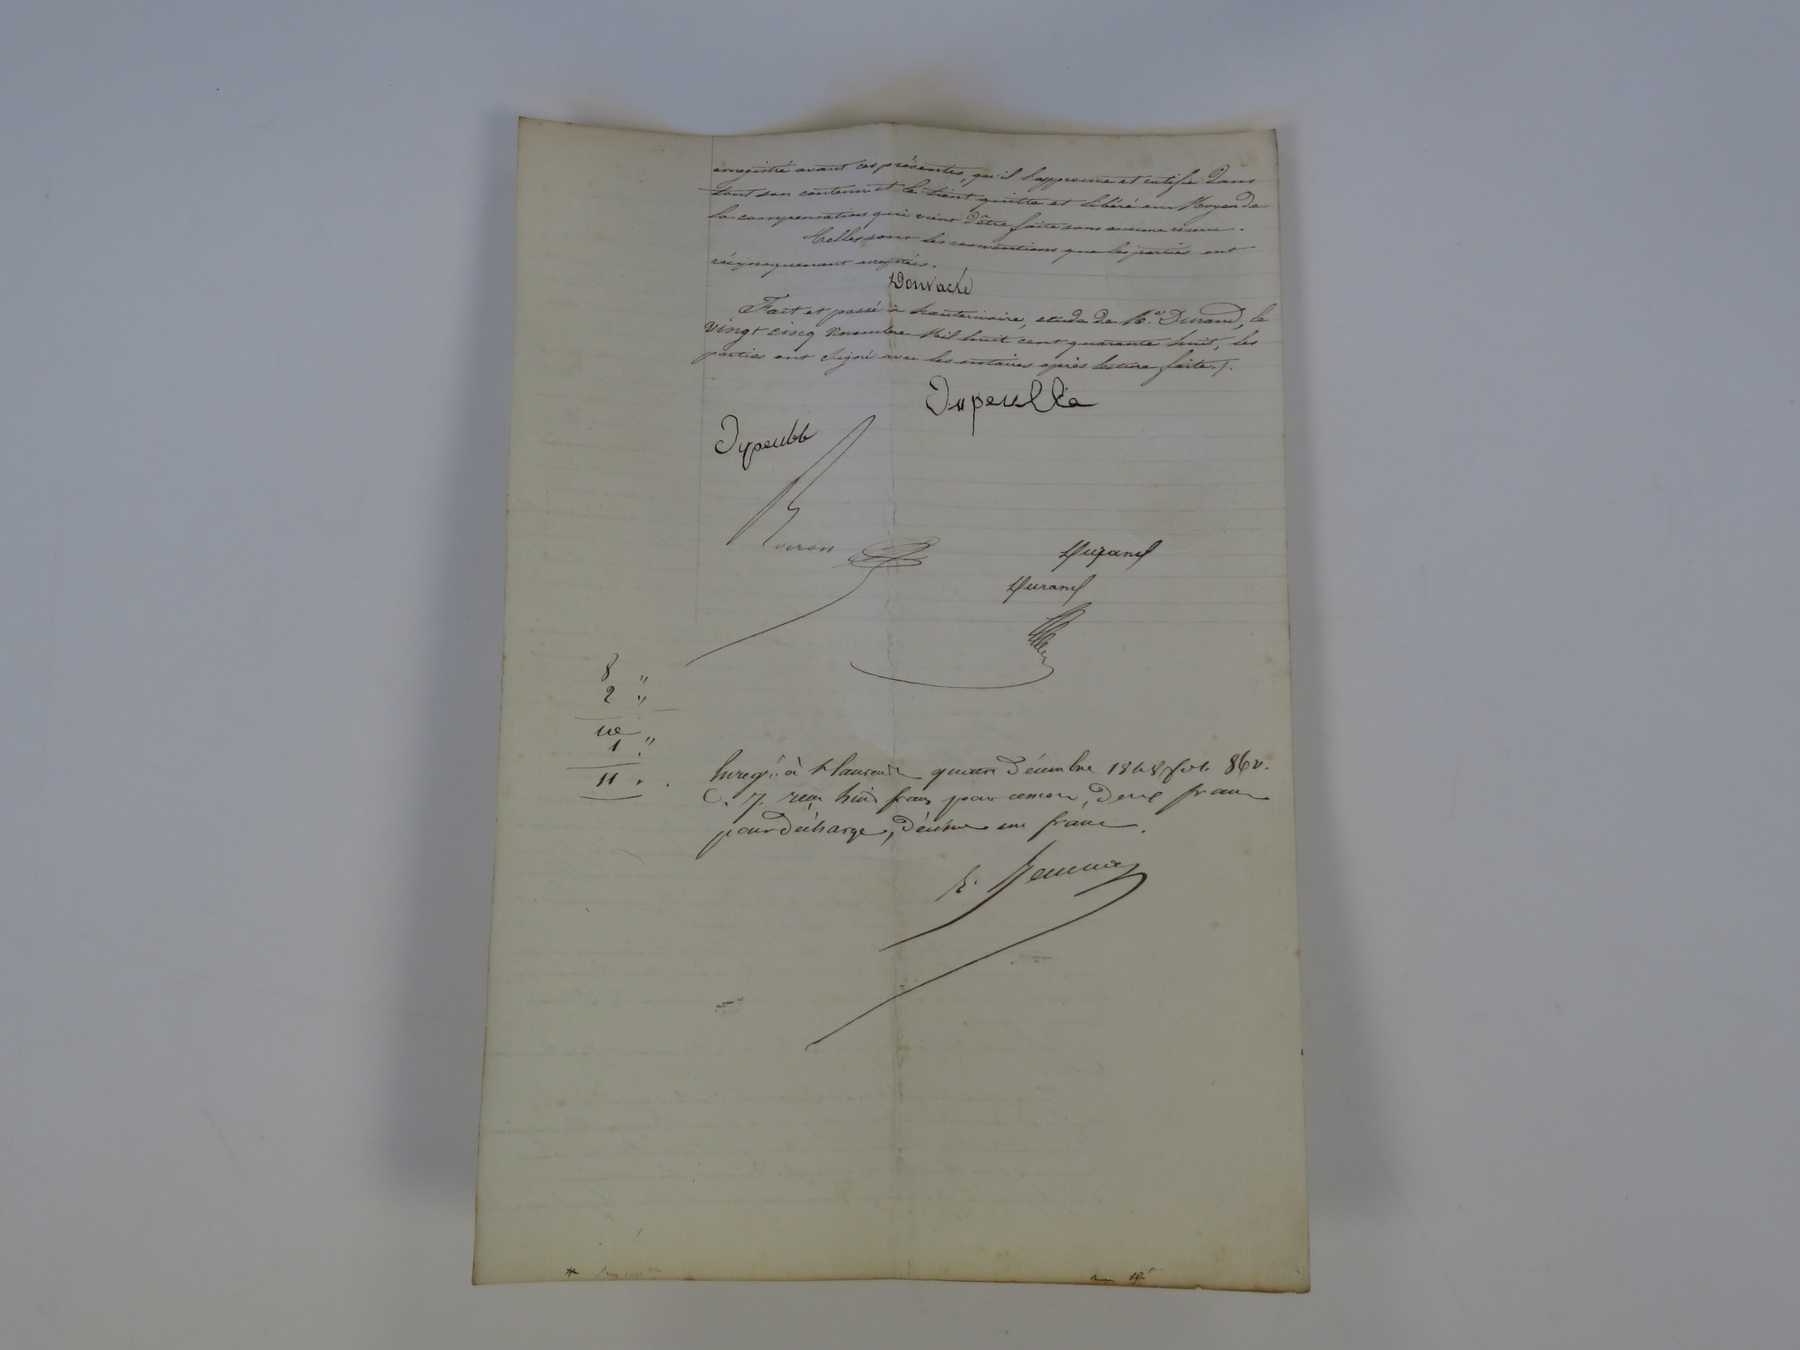 enregistré avant ces présentes, qu'il l'approuve et ratifie dans
tout son contenu et le tient quitte et libéré au Moyen de
la compensation qui vient d'être faite sans aucune réserve.
Telles sont les conventions que les parties ont
réciproquement acceptées.
Fait et passé à hauterivoire, étude de Me. Durand, le
vingt cinq Novembre Mil huit cent quarante huit, les
parties ont signé avec les notaires après lecture faite ./.
Dupeuble
Dupeubl
Durand
Durand
8 "
2 "
10
1 "
11 .
Enregé. à St laurent quatre Décembre 1848 fol. 86 v.
C. 7. reçu huit francs pour cession, deux francs
pour décharge, décime un franc.